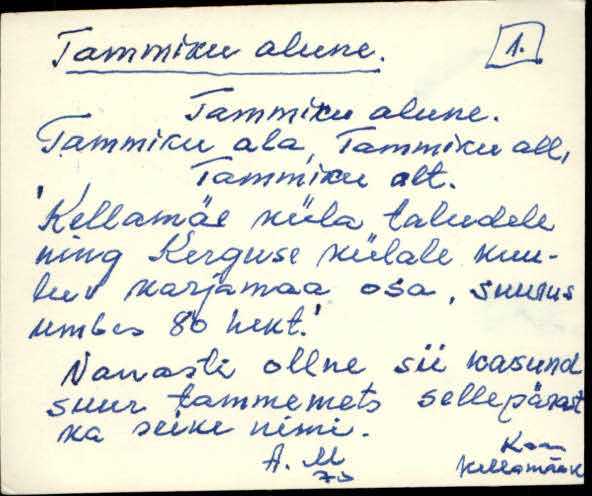 Tammiku alune. 1.
Tammiku alune.
Tammiku ala, Tammiku all,
Tammiku alt.
'Kellamäe küla taludele
ning Kerguse külale kuu-
luv karjamaa osa, suurus
umbes 80 hekt.'
Vanasti ollne sii kasund
suur tammemets sellepärast
ka seike nimi.
A. M